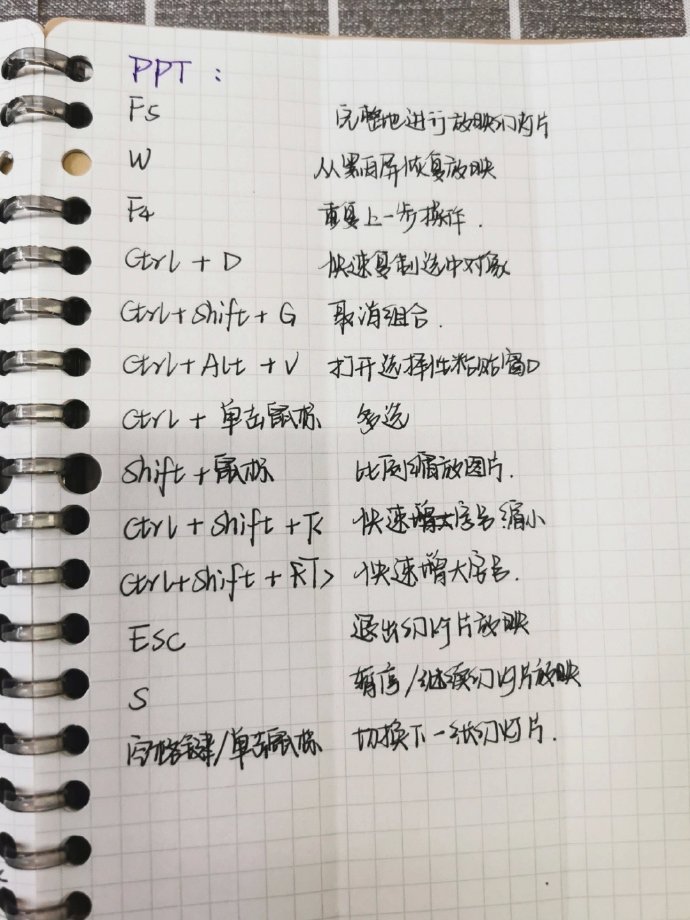 PPT:
F5 完整地进行放映幻灯片
W 从黑白屏恢复放映
F4 重复上一步操作.
Ctrl + D 快速复制选中对象
Ctrl+Shift + G 取消组合.
Ctrl+Alt + V 打开选择性粘贴窗口
Ctrl + 单击鼠标 多选
Shift + 鼠标 比例缩放图片.
Ctrl + Shift + 快速字号缩小
Ctrl+Shift + > 快速增大字号.
ESC 退出幻灯片放映
S 暂停/继续幻灯片放映
空格键/单击鼠标 切换下一张幻灯片.